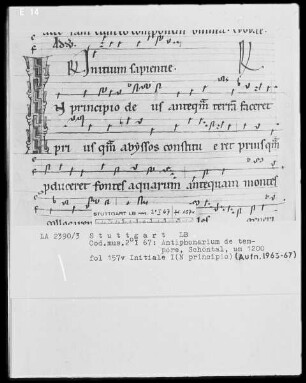 E 14
Initium sapientie.
IN principio de us anteqm terrā faceret
pri us qm abyssos constitu e ret priusqm
adduceret fontes aquarum antequam montes
STUTTGART LB
LA 2390/3 Stuttgart LB
Cod.mus.2°I 67: Antiphonarium de tem-
pore, Schöntal, um 1200
fol 157v Initiale I(N principio) (Aufn.1965-67)